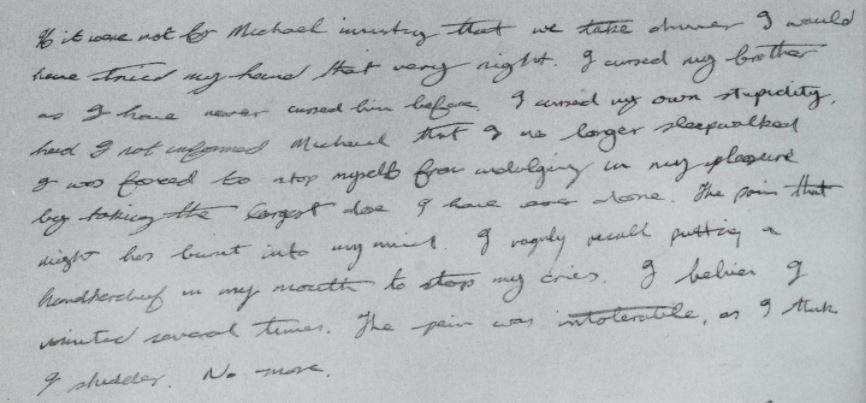 If it were not for Michael insisting that we take dinner I would
have tried my hand that very night. I cursed my brother
as I have never cursed him before. I cursed my own stupidity,
had I not informed Michael that I no longer sleepwalked
I was forced to stop myself from indulging in my pleasure
by taking the largest dose I have ever done. The pain that
night has burnt into my mind. I vaguely recall putting a
handkerchief in my mouth to stop my cries. I believe I
vomited several times. The pain was intolerable, as I think
I shudder. No more.